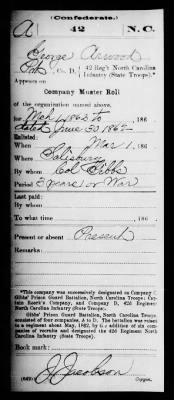 (Confederate.)
A 42 N.C.
George Atwood
Pvt, Co. D, 42 Reg't North Carolina
Infantry (State Troops).*
Appears on
Company Muster Roll
of the organization named above,
for Mch 1, 1862 to , 186
dated June 30 1862 , 186 .
Enlisted:
When Mar 1, 186
Where Salisbury
By whom Col Gibbs
Period 3 years or War
Last paid:
By whom
To what time , 186 .
Present or absent Present
Remarks:
*This company was successively designated as Company
Gibbs' Prison Guard Battalion, North Carolina Troops; Captain
and Company D, 42d Regiment
North Carolina Infantry (State Troops).
Gibbs' Prison Guard Battalion, North Carolina Troops,
consisted of four companies, A to D. The battalion was raised
to a regiment about May, 1862, by the addition of six companies
of recruits and designated the 42d Regiment
North Carolina Infantry (State Troops).
Book mark:
J Jacobson
Copyist.